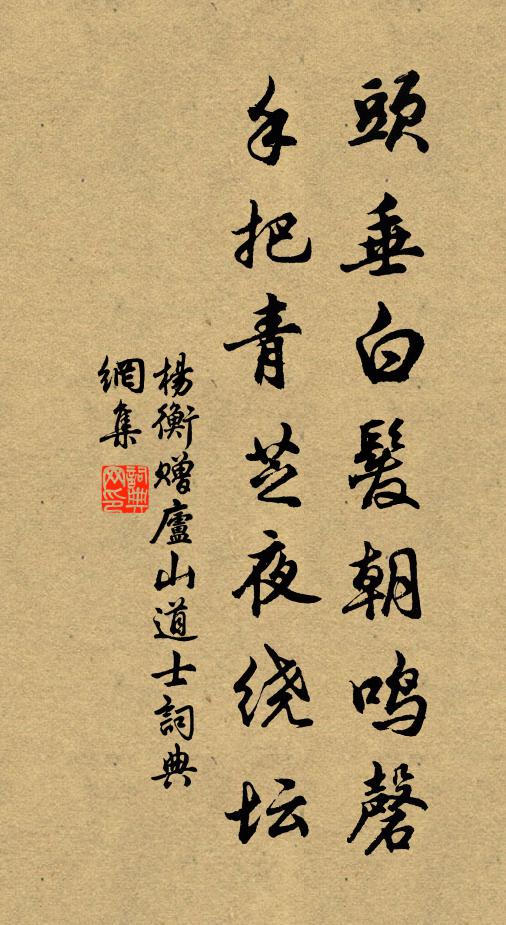 頭垂白髮朝鳴磬
手把青芝夜绕坛
楊衡贈廬山道士詞典
網集
詞典
网印